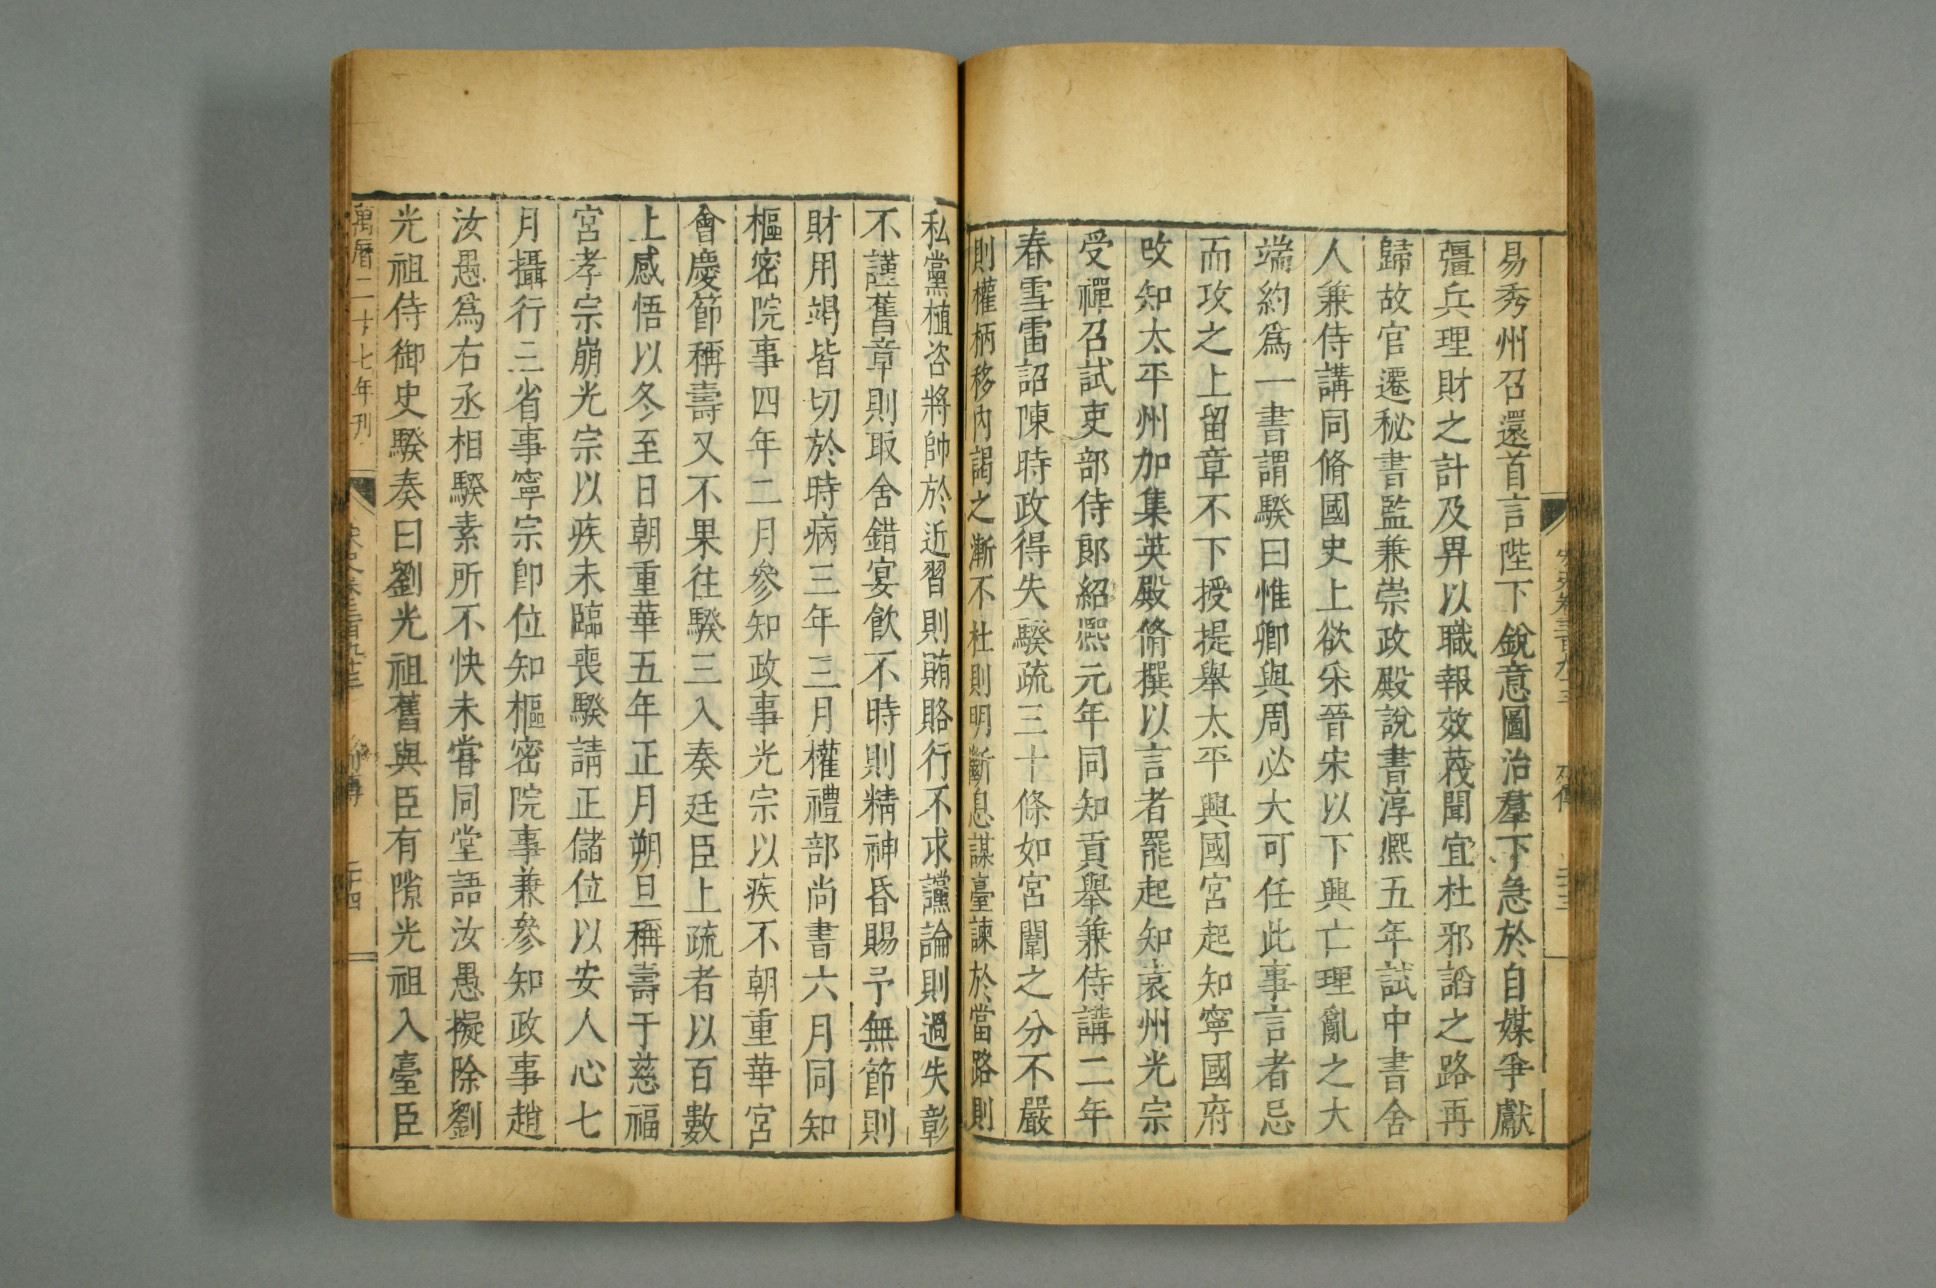 易秀州召還首言陛下銳意圖治羣下急於自媒爭獻
彊兵理財之計及畀以職報效蔑聞宜杜邪謟之路再
歸故官遷秘書監兼崇政殿說書淳熙五年試中書舍
人兼侍講同脩國史上欲采晉宋以下興亡理亂之大
端約爲一書謂騤曰惟卿與周必大可任此事言者忌
而攻之上留章不下授提舉太平興國宮起知寧國府
改知太平州加集英殿脩撰以言者罷起知袁州光宗
受禪召試吏部侍郞紹熙元年同知貢舉兼侍講二年
春雪雷詔陳時政得失騤疏三十條如宮闈之分不嚴
則權柄移內謁之漸不杜則明斷息謀臺諫於當路則
私黨植咨將帥於近習則賄賂行不求讜論則過失彰
不謹舊章則取舍錯宴飮不時則精神昏賜予無節則
財用竭皆切於時病三年三月權禮部尚書六月同知
樞密院事四年二月參知政事光宗以疾不朝重華宮
會慶節稱壽又不果往騤三入奏廷臣上疏者以百數
上感悟以冬至日朝重華五年正月朔旦稱壽于慈福
宮孝宗崩光宗以疾未臨喪騤請正儲位以安人心七
月攝行三省事寧宗卽位知樞密院事兼參知政事趙
汝愚爲右丞相騤素所不快未甞同堂語汝愚擬除劉
光祖侍御史騤奏曰劉光祖舊與臣有隙光祖入臺臣
萬曆二十七年刊
宋史卷三百九十三
列傳
二十四